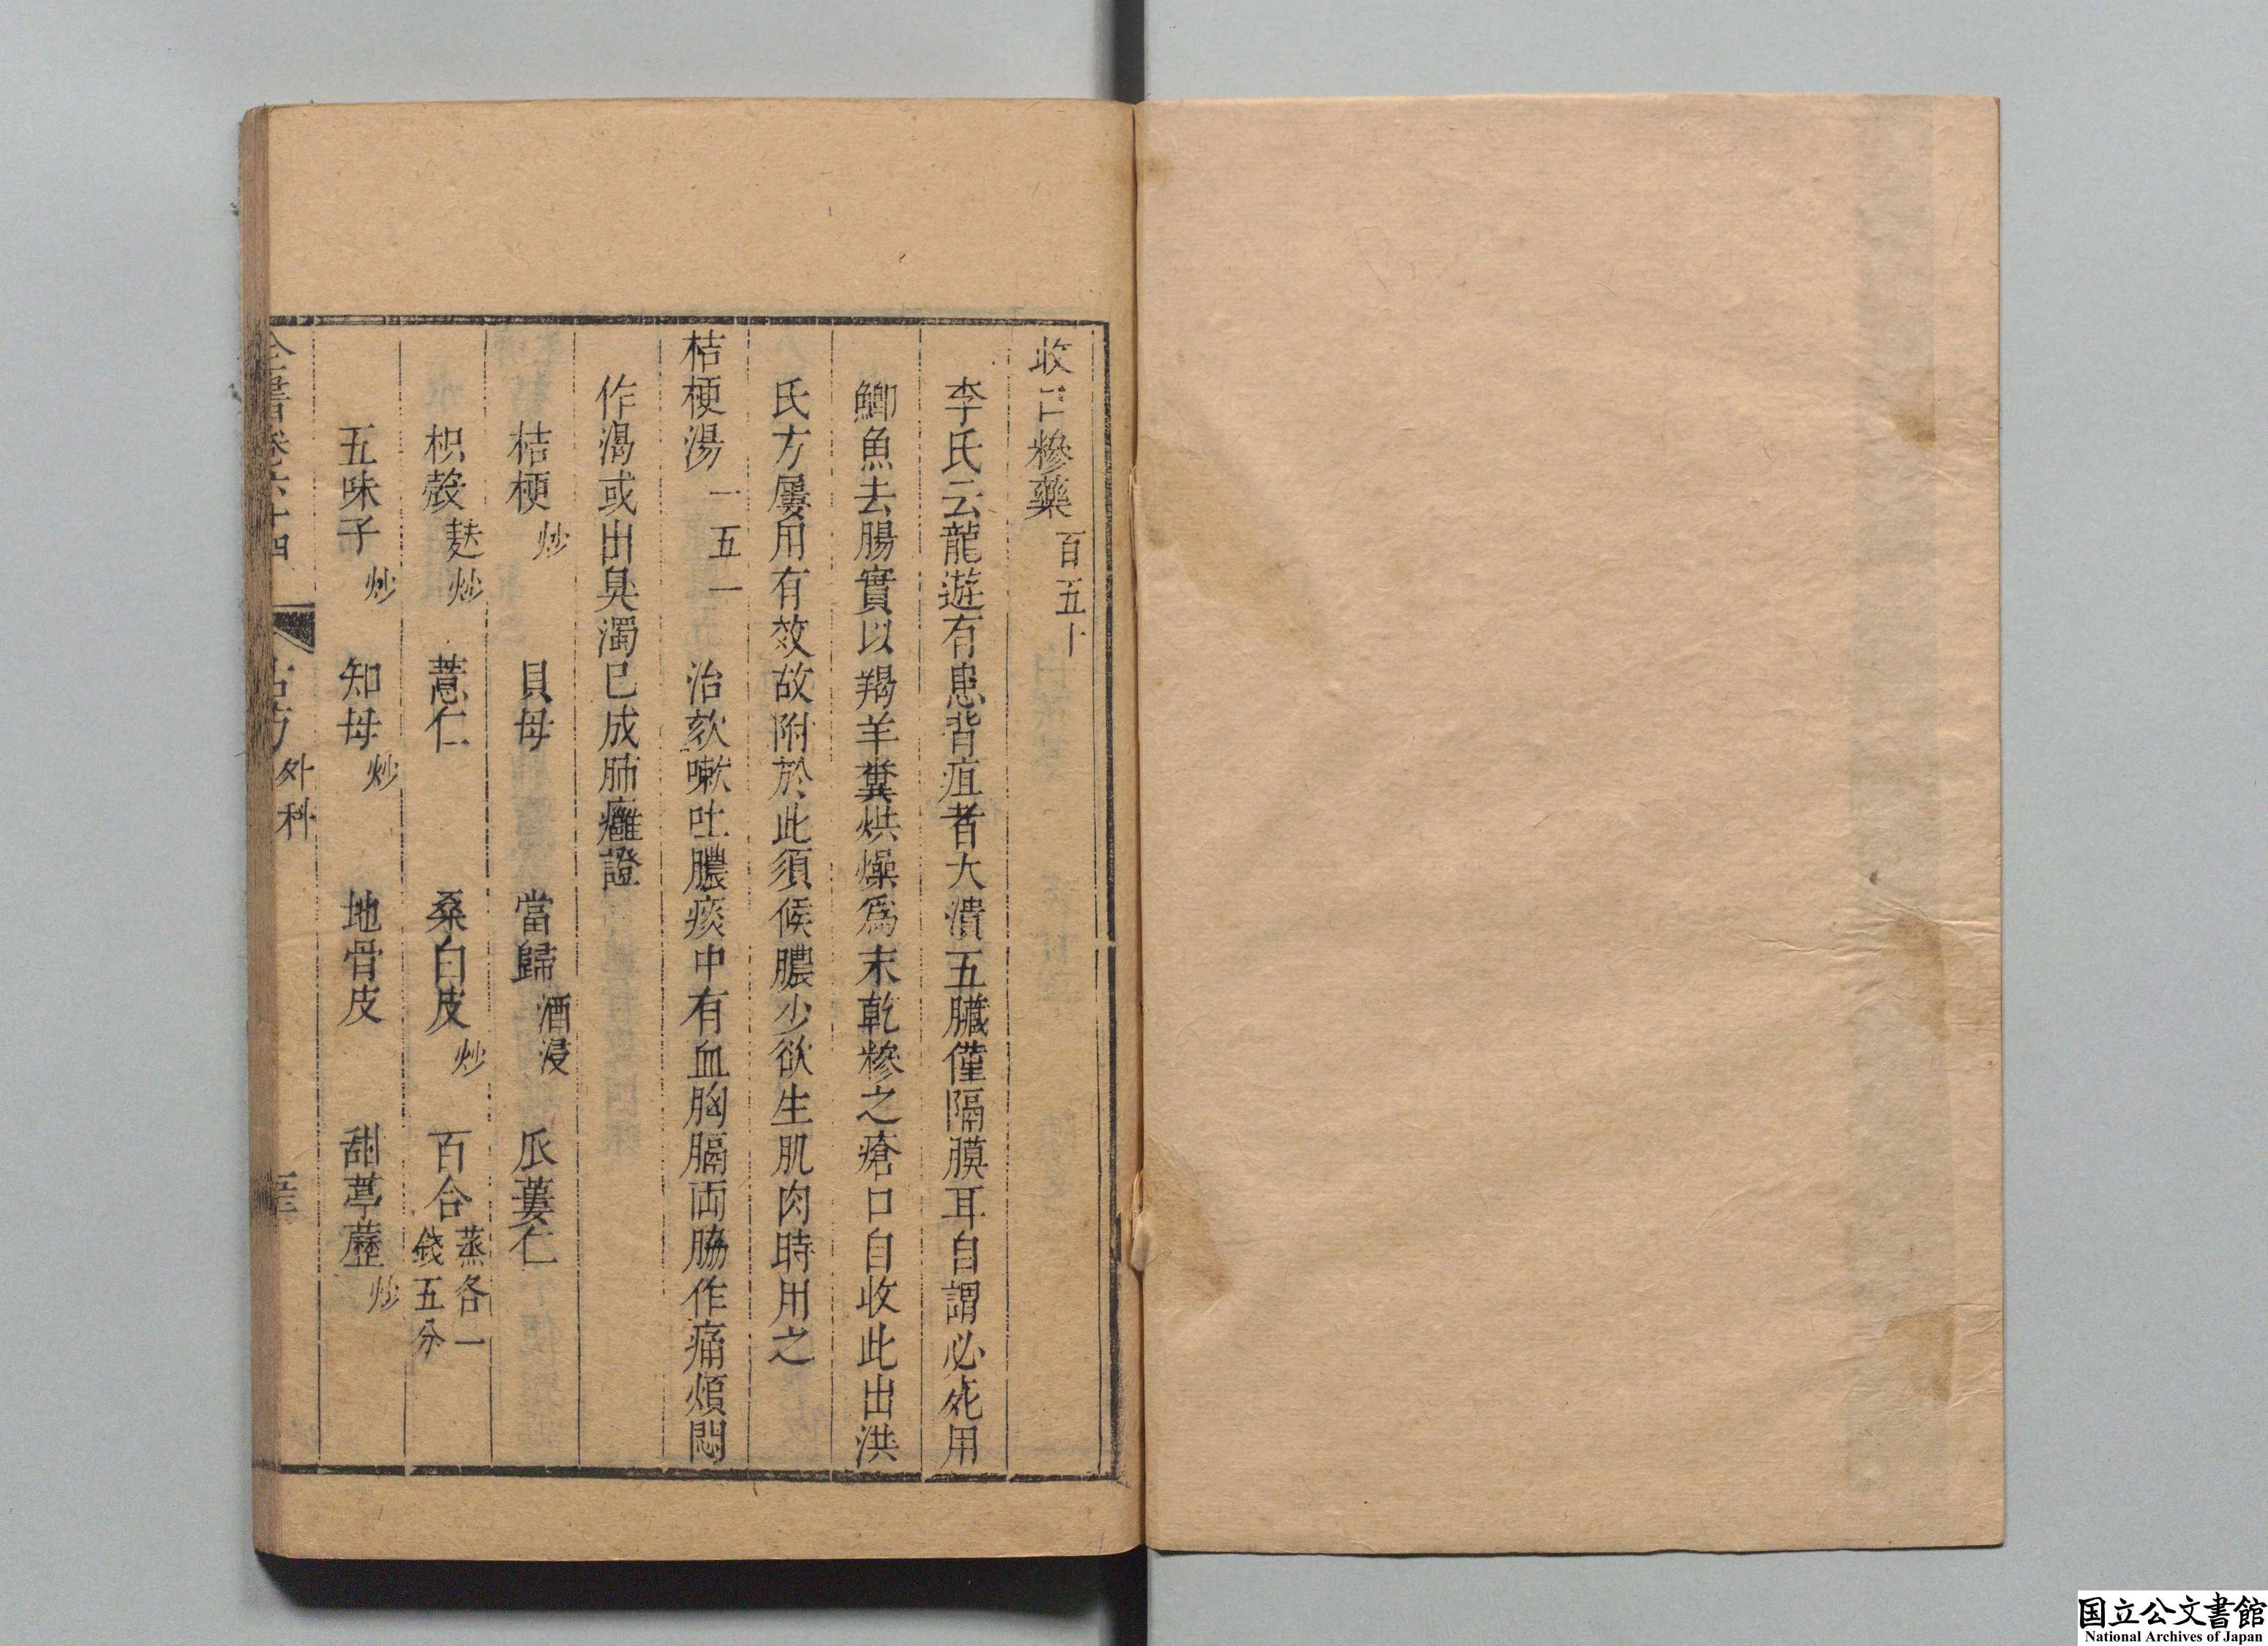 收口糝藥 百五十
李氏云龍遊有患背疽者大潰五臟僅隔膜耳自謂必死用
鯽魚去腸實以羯羊糞烘燥爲末乾糝之瘡口自收此出洪
氏方屢用有效故附於此須候膿少欲生肌肉時用之
桔梗湯 一五一 治欬嗽吐膿痰中有血胸膈両脇作痛煩悶
作渴或出臭濁已成肺癰證
桔梗 炒 貝母 當歸 酒浸 瓜蔞仁
枳殼 麩炒 薏仁 桑白皮 炒 百合 蒸各一錢五分
五味子 炒 知母 炒 地骨皮 甜葶藶 炒
全書卷六十四 古方 外科
国立公文書館
National Archives of Japan